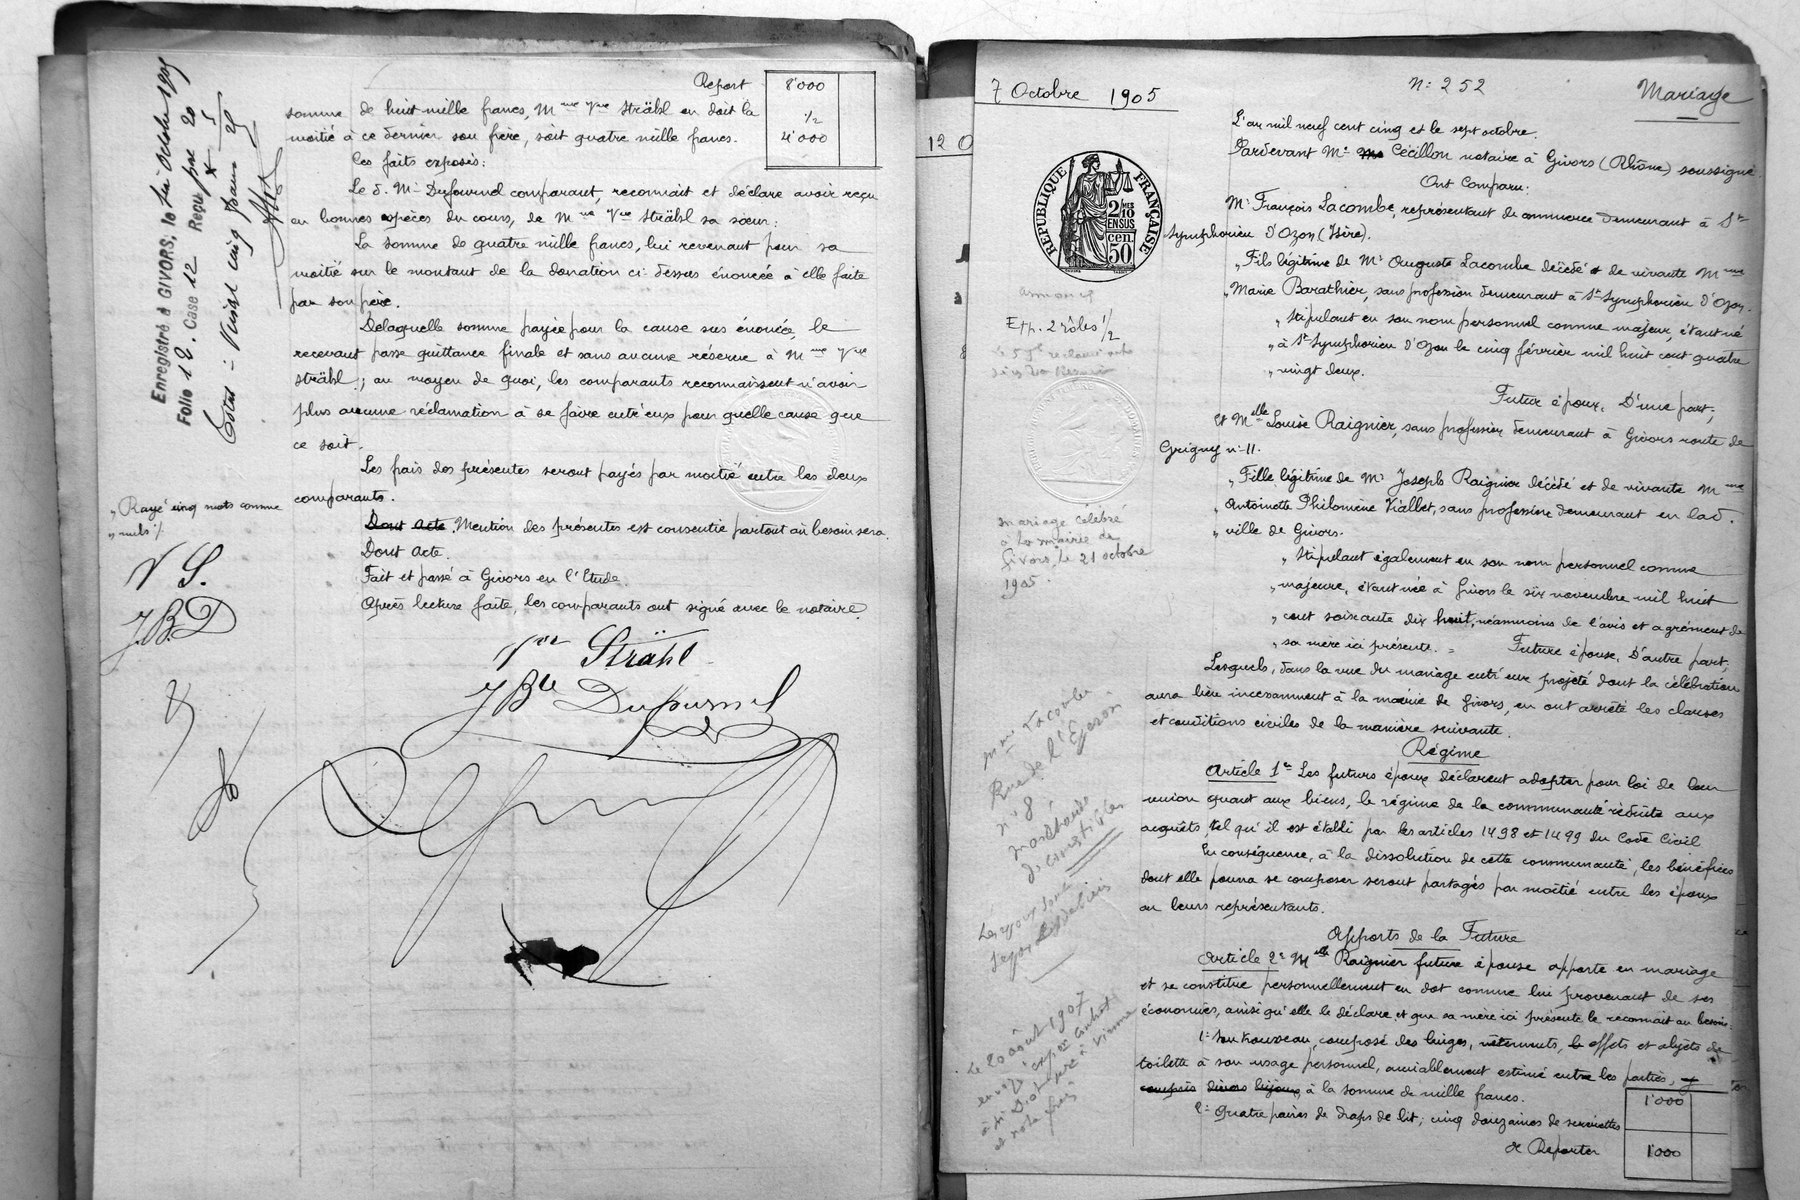 Report 8'000
somme de huit mille francs, Mme Vve Strähl en doit la 1/2
moitié à ce dernier son frère, soit quatre mille francs. 4'000
Ces faits exposés:
Le d. Mr Dufournel comparant, reconnait et déclare avoir reçu
en bonnes espèces du cours, de Mme Vve Strähl sa sœur:
La somme de quatre mille francs, lui revenant pour sa
moitié sur le montant de la donation ci-dessus énoncée à elle faite
par son père.
De laquelle somme payée pour la cause sus énoncée, le
recevant passe quittance finale et sans aucune réserve à Mme Vve
Strähl; au moyen de quoi, les comparants reconnaissent n'avoir
plus aucune réclamation à se faire entr'eux pour quelle cause que
ce soit.
Les frais des présentes seront payés par moitié entre les deux
comparants.
Dont acte. Mention des présentes est consentie partout où besoin sera.
Dont acte.
Fait et passé à Givors en l'Etude.
Après lecture faite, les comparants ont signé avec le notaire.
Vve Strähl
JBte Dufournel
Enregistré à GIVORS, le dix Octobre 1905
Folio 18. Case 12 Reçu pre 20
5
25
Total: Vingt cinq francs
„ Rayé cinq mots comme
„ nuls /.
V S.
J.B.D
12 O
7 Octobre 1905
N: 252
Mariage
RÉPUBLIQUE FRANÇAISE
2/10MES EN SUS
50 cen.
L'an mil neuf cent cinq et le sept octobre.
Pardevant Me Cécillon notaire à Givors (Rhône) soussigné.
Ont Comparu:
Mr François Lacombe, représentant de commerce demeurant à St
Symphorien d'Ozon (Isère).
„ Fils légitime de Mr Auguste Lacombe décédé & de vivante Mme
„ Marie Barathier, sans profession demeurant à St Symphorien d'Ozon.
„ Stipulant en son nom personnel comme majeur, étant né
„ à St Symphorien d'Ozon le cinq février mil huit cent quatre
„ vingt deux.
Futur époux, D'une part;
Et Melle Louise Raignier, sans profession demeurant à Givors route de
Grigny n: 11.
„ Fille légitime de Mr Joseph Raignier décédé et de vivante Mme
„ Antoinette Philomène Viallet, sans profession demeurant en lad.
„ ville de Givors.
„ Stipulant également en son nom personnel comme
„ majeure, étant née à Givors le six novembre mil huit
„ cent soixante dix huit, néanmoins de l'avis et agrément de
„ sa mère ici présente. = Future épouse, D'autre part;
Lesquels, dans la vue du mariage entr'eux projeté dont la célébration
aura lieu incessamment à la mairie de Givors, en ont arrêté les clauses
et conditions civiles de la manière suivante.
Régime
Article 1er Les futurs époux déclarent adopter pour loi de leur
union quant aux biens, le régime de la communauté réduite aux
acquêts, tel qu'il est établi par les articles 1498 et 1499 du Code Civil
En conséquence, à la dissolution de cette communauté, les bénéfices
dont elle pourra se composer seront partagés par moitié entre les époux
ou leurs représentants.
Apports de la Future
Article 2e Melle Raignier future épouse apporte en mariage
et se constitue personnellement en dot comme lui provenant de ses
économies, ainsi qu'elle le déclare et que sa mère ici présente le reconnait au besoin.
1: Son trousseau, composé des linges, vêtements, effets et objets de
toilette à son usage personnel, amiablement estimé entre les parties, y
compris divers bijoux, à la somme de mille francs. 1'000
2: Quatre paires de draps de lit; cinq douzaines de serviettes
A Reporter 1'000
Exp. 2 rôles 1/2
mariage célébré
à la mairie de
Givors, le 21 octobre
1905.
Mme Lacombe
Rue de l'Eperon
n: 8
marchande
de comestibles
Les époux sont
Le 20 août 1907